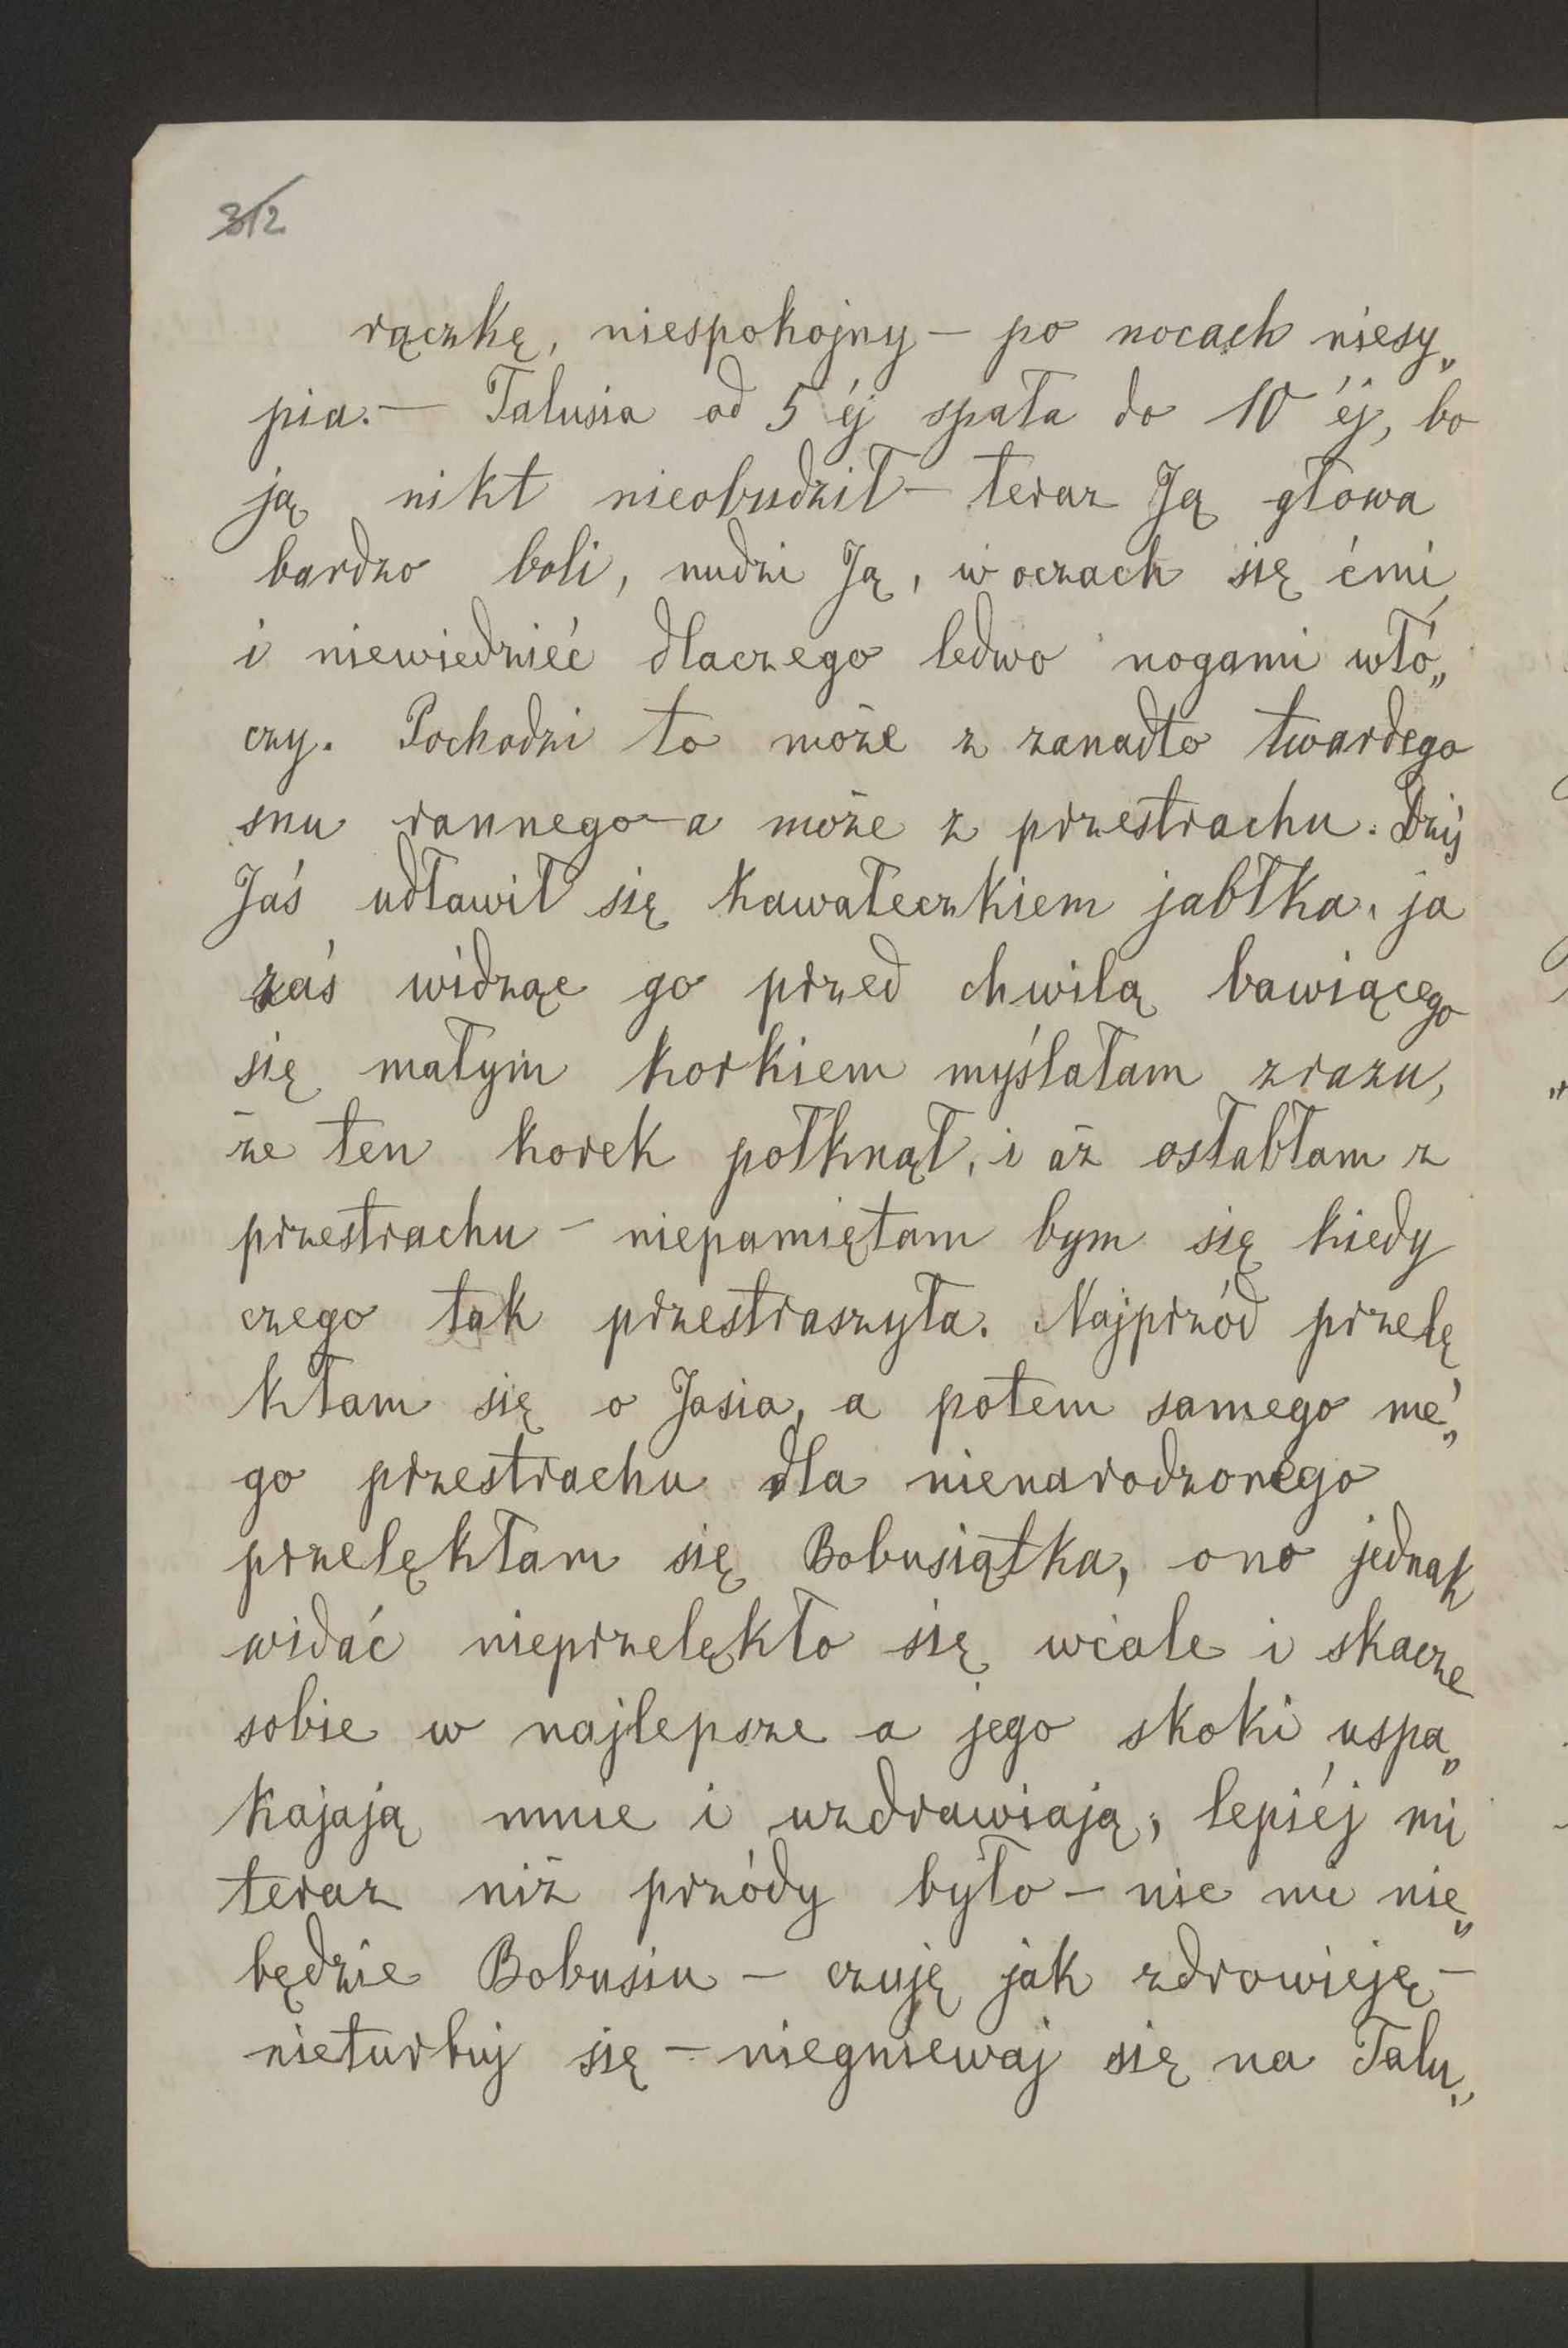 312
rączkę, niespokojny — po nocach niesy„
pia. — Talusia od 5 éj spała do 10 éj, bo
ją nikt nieobudził — teraz Ją głowa
bardzo boli, nudzi Ją, w oczach się ćmi
i niewiedzieć dlaczego ledwo nogami włó„
czy. Pochodzi to może z zanadto twardego
snu rannego — a może z przestrachu. Dziś
Jaś udławił się kawałeczkiem jabłka, ja
zaś widząc go przed chwilą bawiącego
się małym korkiem myślałam zrazu,
że ten korek połknął, i aż osłabłam z
przestrachu — niepamiętam bym się kiedy
czego tak przestraszyła. Najprzód przelę
kłam się o Jasia, a potem samego me„
go przestrachu dla nienarodzonego
przelękłam się Bobusiątka, ono jednak
widać nieprzelękło się wcale i skacze
sobie w najlepsze a jego skoki uspa„
kajają mnie i uzdrawiają; lepiéj mi
teraz niż przódy było — nic mi nie„
będzie Bobusiu — czuję jak zdrowieję —
nieturbuj się — niegniewaj się na Talu„